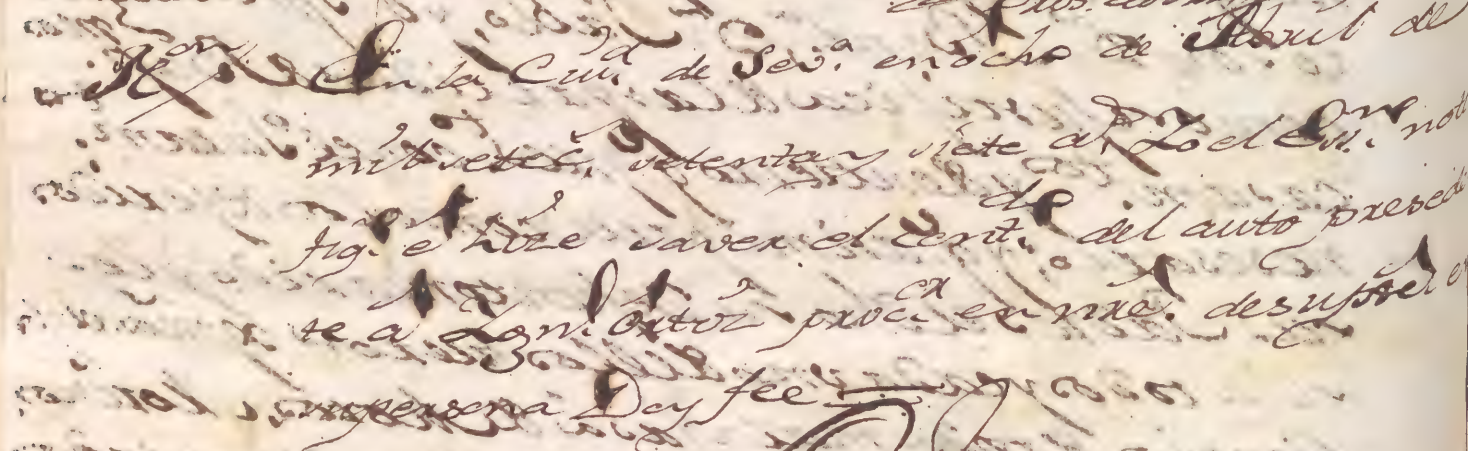 Non En la Ciud. de Seva. en ocho de Abril de
mil setecs. setenta y siete as. Yo el Ssno. noti
fiqe. e hize saver el contdo. del auto presede
te a Lzn. Ortiz procr. en nre. de su pte. e
su persona Doy fee